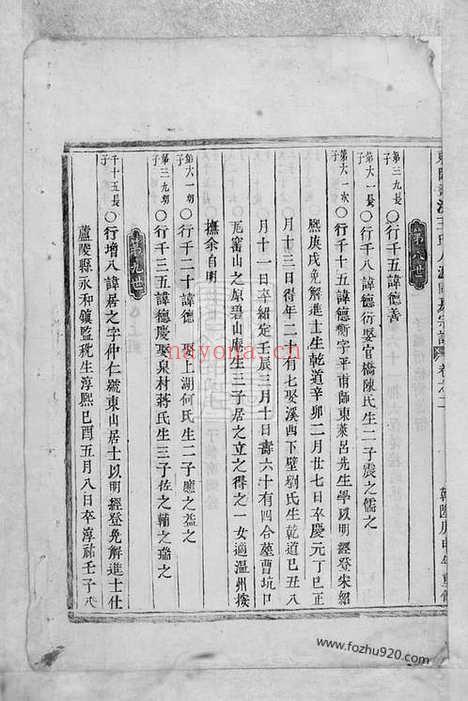 第八世
第三九長子 ○行千五諱德善
第大一長子 ○行千八諱德衍娶官橋陳氏生二子震之儒之
第大一次子 ○行千十五諱德衡字平甫師東萊呂先生學以明經登朱紹
熙庚戌免解進士生乾道辛卯二月廿七日卒慶元丁巳正
月十三日得年二十有七娶溪西下墅劉氏生乾道己丑八
月十一日卒紹定壬辰三月十日壽六十有四合墓曹坑口
瓦窰山之原碧山庵生三子居之立之得之一女適溫州挨
撫余自明
第大一幼子 ○行千二十諱德 娶上湖何氏生二子應之益之
第三九幼子 ○行千三五諱德慶娶泉村蔣氏生三子佐之輔之瑞之
第九世
千十五長子 ○行增八諱居之字仲仁號東山居士以明經登免解進士仕
廬陵縣永和鎮監稅生淳熙己酉五月八日卒淳祐壬子
nayona.cn
www.fozhu920.com